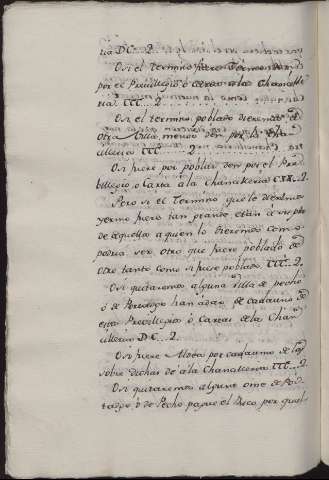 ria DC...2.
O si el termino fuere Termino den
por el Previllegio ó Carta a la Chancille
ria CCC...2.
O si el termino poblado dieremos á
otra Villa menor den por la Chan
cilleria CCC......2
O si fuere por poblar den por el Pre
villegio ó Carta á la Chancilleria CXX..2.
Pero si el Termino que le dieremos
yermo fuere tan grande
de aquella a quien lo dieremos como
podria ser otro que fuere poblado de
otro tanto como si fuese poblado CCC..2.
O si quitaremos alguna Villa de pecho
ó de Portazgo han de dar de cada uno de
estos Previllegios ó Cartas de la Chan
cilleria DC...2.
O si fuere Aldea por cada uno de los
sobre dichos dé a la Chancilleria CCC..2.
O si quitaremos algunt ome de Por
tazgo ó de Pecho pague el Rico por qual